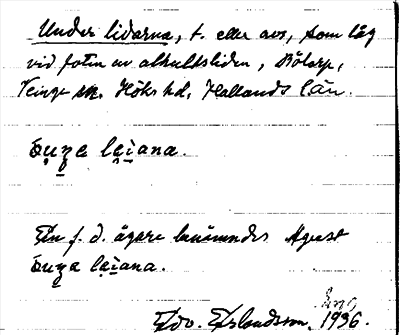 Under lidarna, t. eller avs, som låg
vid foten av alhultsliden, Bölarp,
Veinge sn. Höks hd, Hallands län.
lạiana.
En f. d. ägare benämndes August
lạiana.
Edv. Erlandsson, 1936.